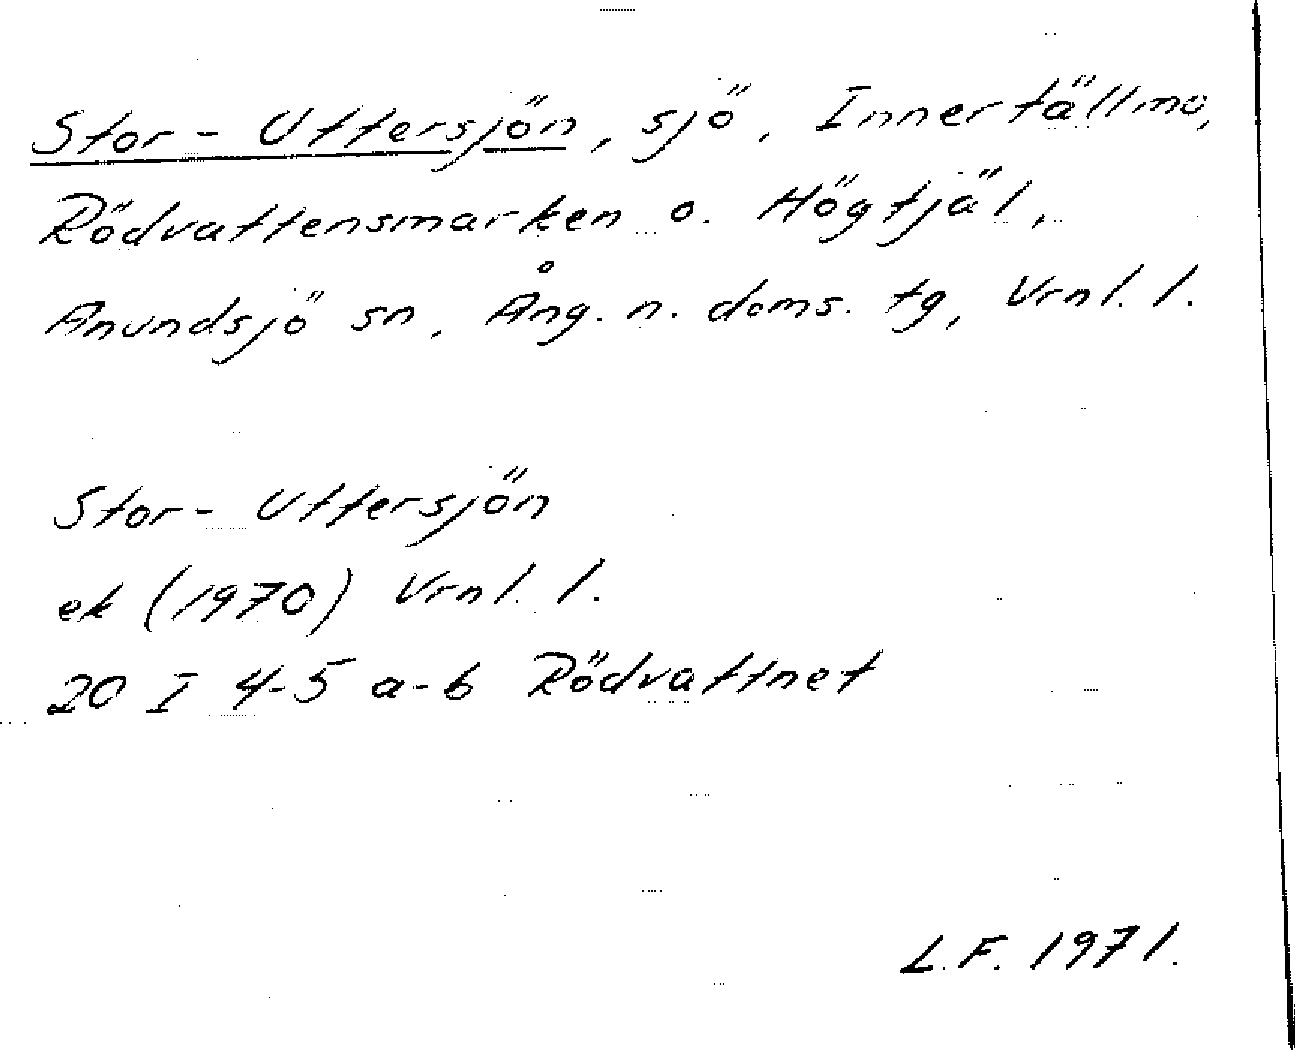 Stor-Uttersjön, sjö, Innertällmo,
Rödvattensmarken o. Högtjäl,
Anundsjö sn, Ång. n. doms. tg, Vrnl. l.
Stor-Uttersjön
ek (1970) Vrnl. l.
20 I 4-5 a-b Rödvattnet
L.F. 1971.